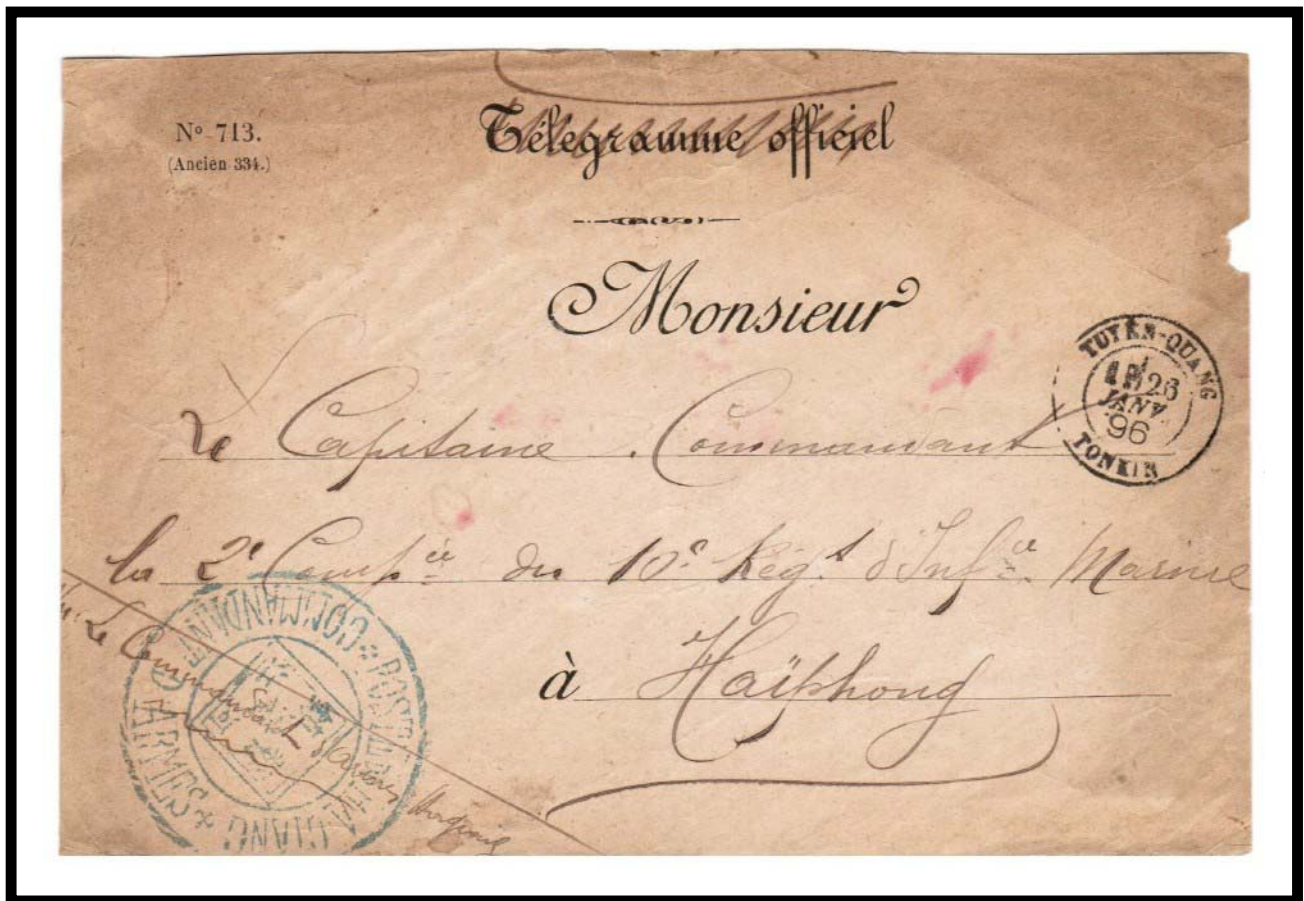 Nº 713.
(Ancien 334.)
Télégramme officiel
Monsieur
TUYÊN-QUANG
26
JANV
96
TONKIN
Le Capitaine Commandant
la 2e Compie du 10e Régt d'Infie Marine
à Haïphong
COMMANDANT D'ARMES * POSTE D'HA GIANG *
Le Commandant d'Armes